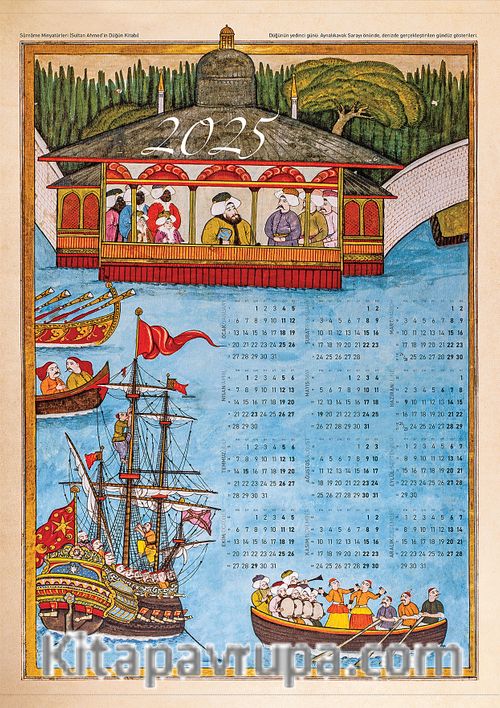 Sûrnâme Minyatürleri (Sultan Ahmed'in Düğün Kitabı)
Düğünün yedinci günü: Aynalıkavak Sarayı önünde, denizde gerçekleştirilen gündüz gösterileri.
2025
OCAK
1 2 3 4 5
6 7 8 9 10 11 12
13 14 15 16 17 18 19
20 21 22 23 24 25 26
27 28 29 30 31
ŞUBAT
1 2
3 4 5 6 7 8 9
10 11 12 13 14 15 16
17 18 19 20 21 22 23
24 25 26 27 28
MART
1 2
3 4 5 6 7 8 9
10 11 12 13 14 15 16
17 18 19 20 21 22 23
24 25 26 27 28 29 30
31
NİSAN
1 2 3 4 5 6
7 8 9 10 11 12 13
14 15 16 17 18 19 20
21 22 23 24 25 26 27
28 29 30
MAYIS
1 2 3 4
5 6 7 8 9 10 11
12 13 14 15 16 17 18
19 20 21 22 23 24 25
26 27 28 29 30 31
HAZİRAN
1
2 3 4 5 6 7 8
9 10 11 12 13 14 15
16 17 18 19 20 21 22
23 24 25 26 27 28 29
30
TEMMUZ
1 2 3 4 5 6
7 8 9 10 11 12 13
14 15 16 17 18 19 20
21 22 23 24 25 26 27
28 29 30 31
AĞUSTOS
1 2 3
4 5 6 7 8 9 10
11 12 13 14 15 16 17
18 19 20 21 22 23 24
25 26 27 28 29 30 31
EYLÜL
1 2 3 4 5 6 7
8 9 10 11 12 13 14
15 16 17 18 19 20 21
22 23 24 25 26 27 28
29 30
EKİM
1 2 3 4 5
6 7 8 9 10 11 12
13 14 15 16 17 18 19
20 21 22 23 24 25 26
27 28 29 30 31
KASIM
1 2
3 4 5 6 7 8 9
10 11 12 13 14 15 16
17 18 19 20 21 22 23
24 25 26 27 28 29 30
ARALIK
1 2 3 4 5 6 7
8 9 10 11 12 13 14
15 16 17 18 19 20 21
22 23 24 25 26 27 28
29 30 31
Kitapavrupa.com